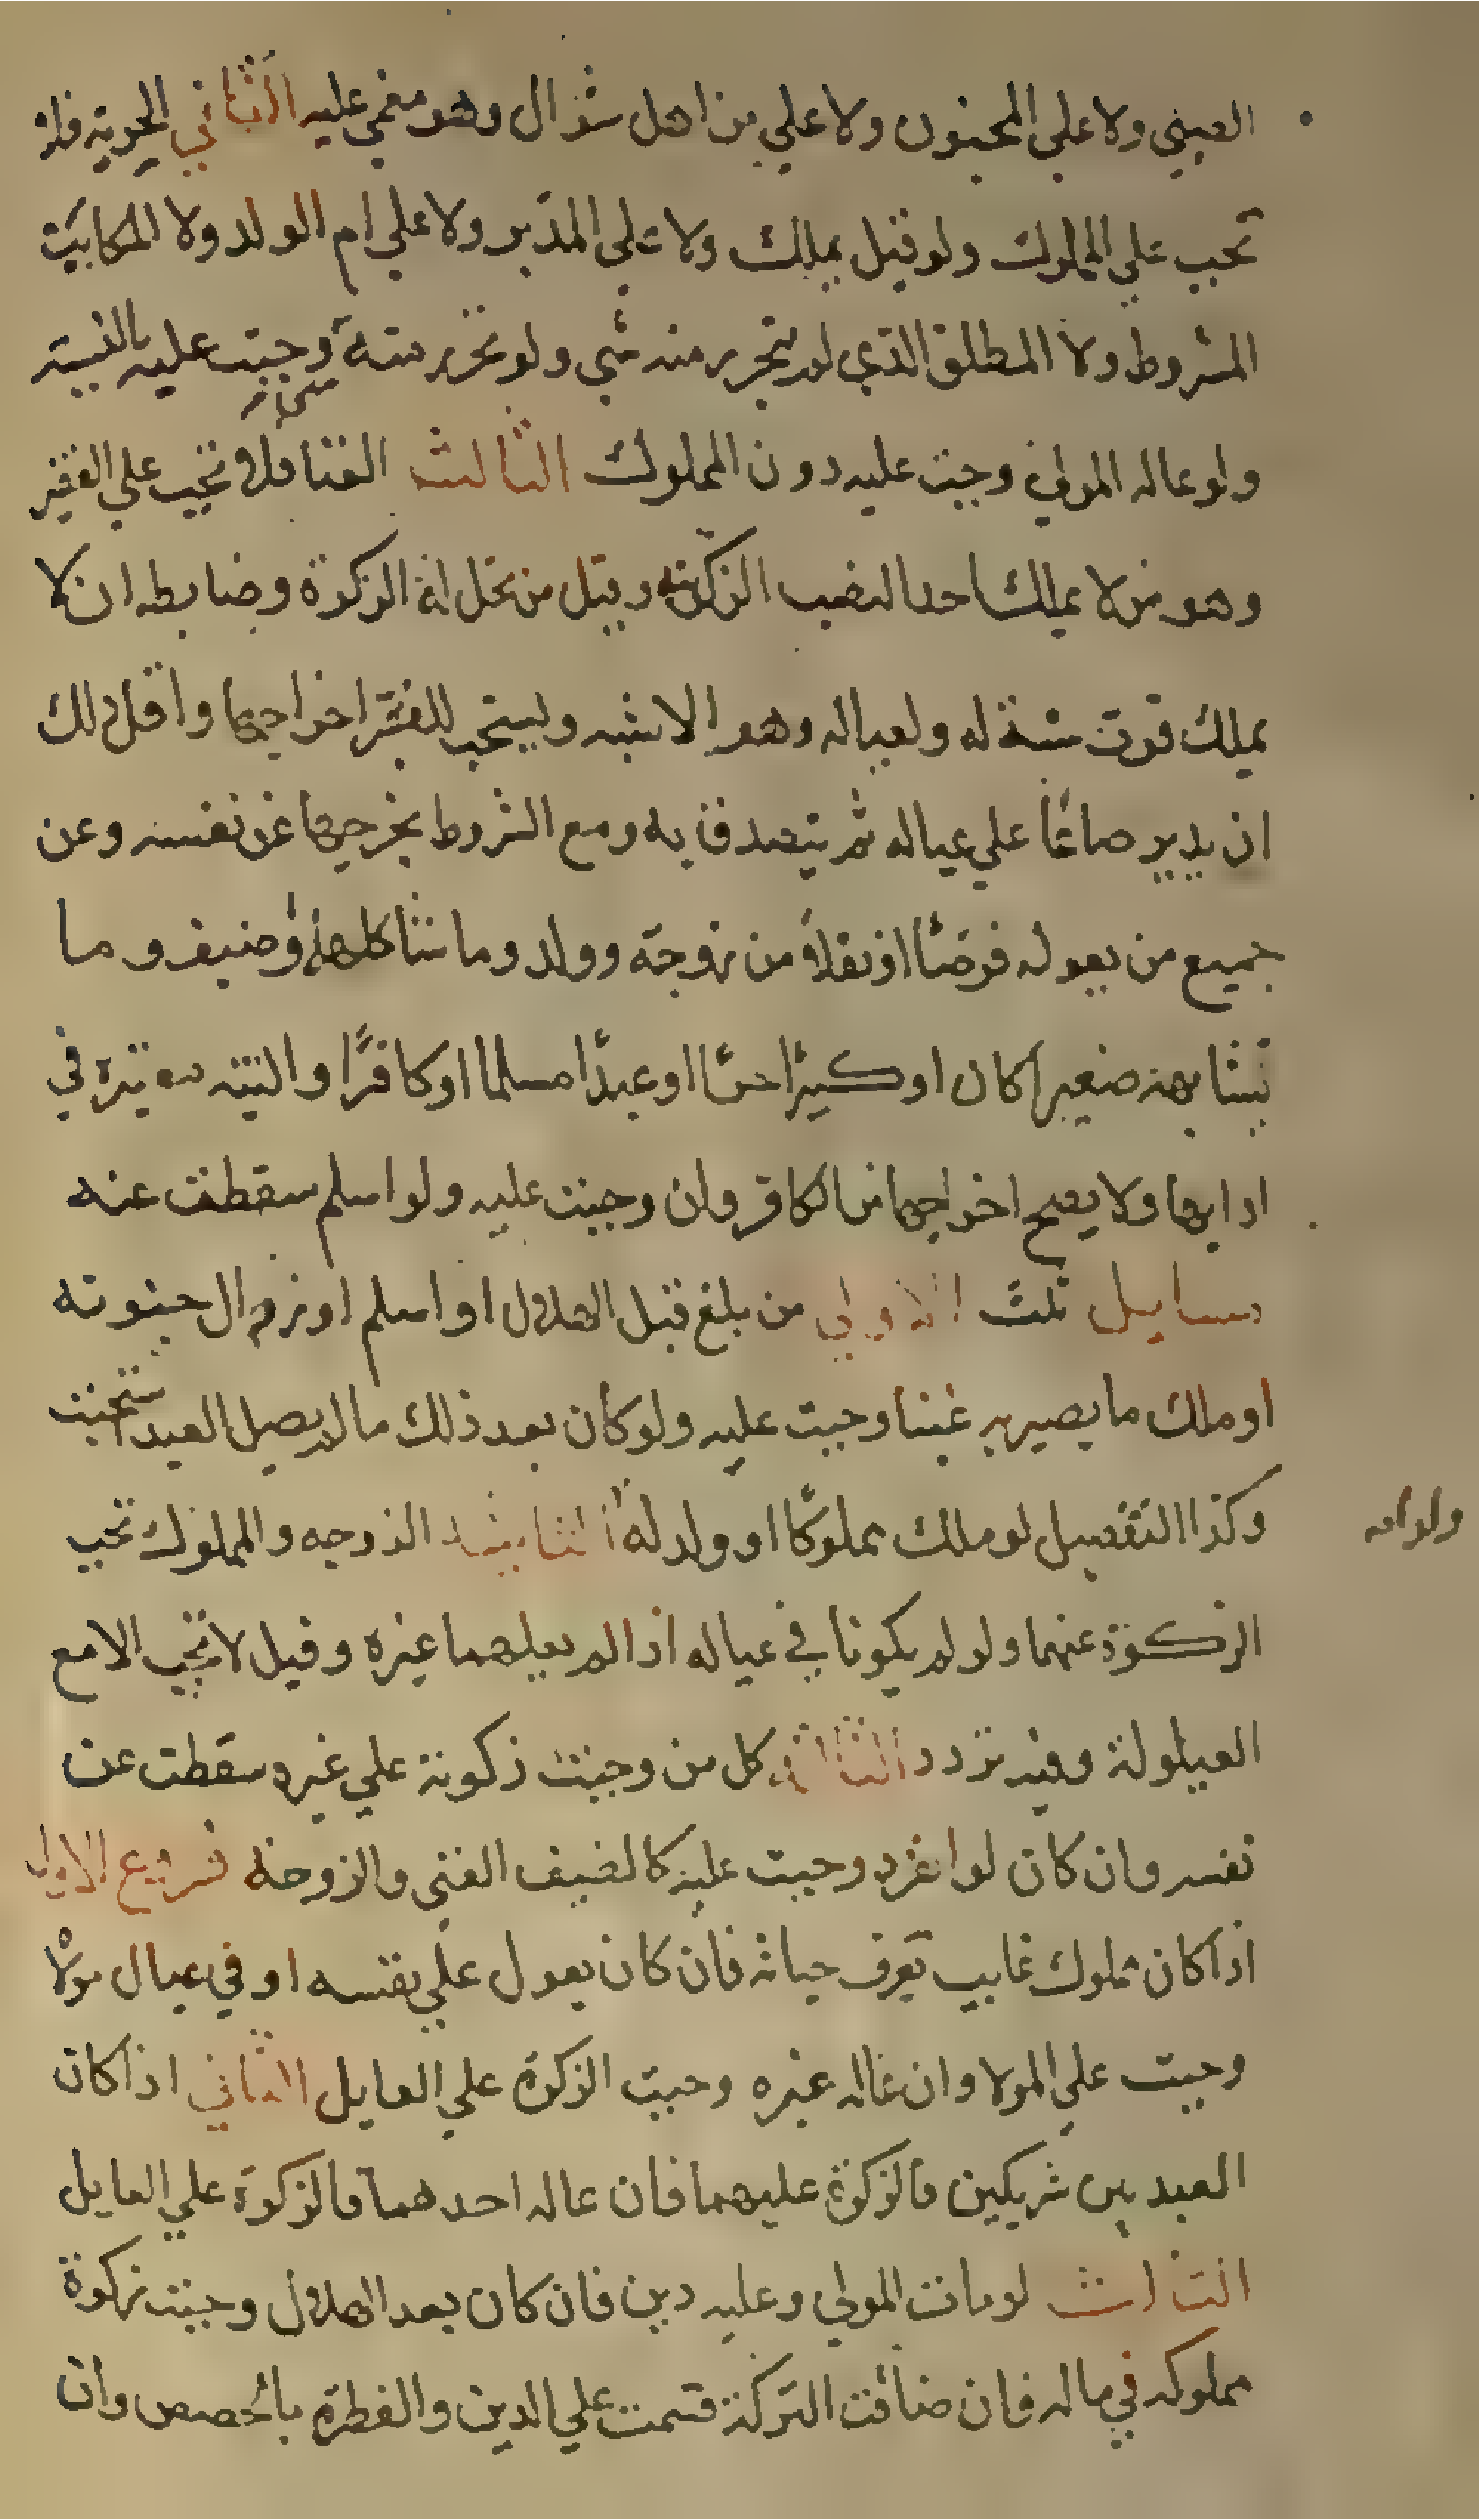 الصبي ولا علي المجنون ولا علي من اهل شوال وهو مغمي عليه الثاني الحرية فلا
تجب علي المملوك ولو قيل يملك ولا علي المدبر ولا علي ام الولد ولا المكاتب
المشروط ولا المطلق الذي لم يتحرر منه شي ولو تحرر منه شي وجبت عليه بالنسبة
ولو عاله المولي وجبت عليه دون المملوك الثالث الغنا فلا تجب علي الفقير
وهو من لا يملك احد النصب الزكوية وقيل من تحل له الزكوة وضابطه ان لا
يملك قوت سنة له ولعياله وهو الاشبه ويستحب للفقير اخراجها واقل ذلك
ان يدير صاعا علي عياله ثم يتصدق به ومع الشروط يخرجها عن نفسه وعن
جميع من يعوله فرضا او نفلا من زوجة وولد وما شاكلهما وضيف وما
شابهه صغيرا كان او كبيرا حرا او عبدا مسلما او كافرا والنية معتبرة في
ادايها ولا يصح اخراجها من الكافر وان وجبت عليه ولو اسلم سقطت عنه
مسايل ثلث الاولي من بلغ قبل الهلال او اسلم او زال جنونه
او ملك ما يصير به غنيا وجبت عليه ولو كان بعد ذلك ما لم يصل العيد استحبت
وكذا التفصيل لو ملك مملوكا او ولد له الثانية الزوجه والمملوك تجب
الزكوة عنهما ولو لم يكونا في عياله اذا لم يعلهما غيره وقيل لا تجب الا مع
العيلولة وفيه تردد الثالثة كل من وجبت زكوته علي غيره سقطت عن
نفسه وان كان لو انفرد وجبت عليه كالضيف الغني والزوجة فروع الاول
اذا كان مملوك غايب يعرف حياته فان كان يعول علي نفسه او في عيال مولاه
وجبت علي المولا وان عاله غيره وجبت الزكوة علي العايل الثاني اذا كان
العبد بين شريكين فالزكوة عليهما فان عاله احدهما فالزكوة علي العايل
الثالث لو مات المولي وعليه دين فان كان بعد الهلال وجبت زكوة
مملوكه في ماله فان ضاقت التركة قسمت علي الدين والفطرة بالحصص وان